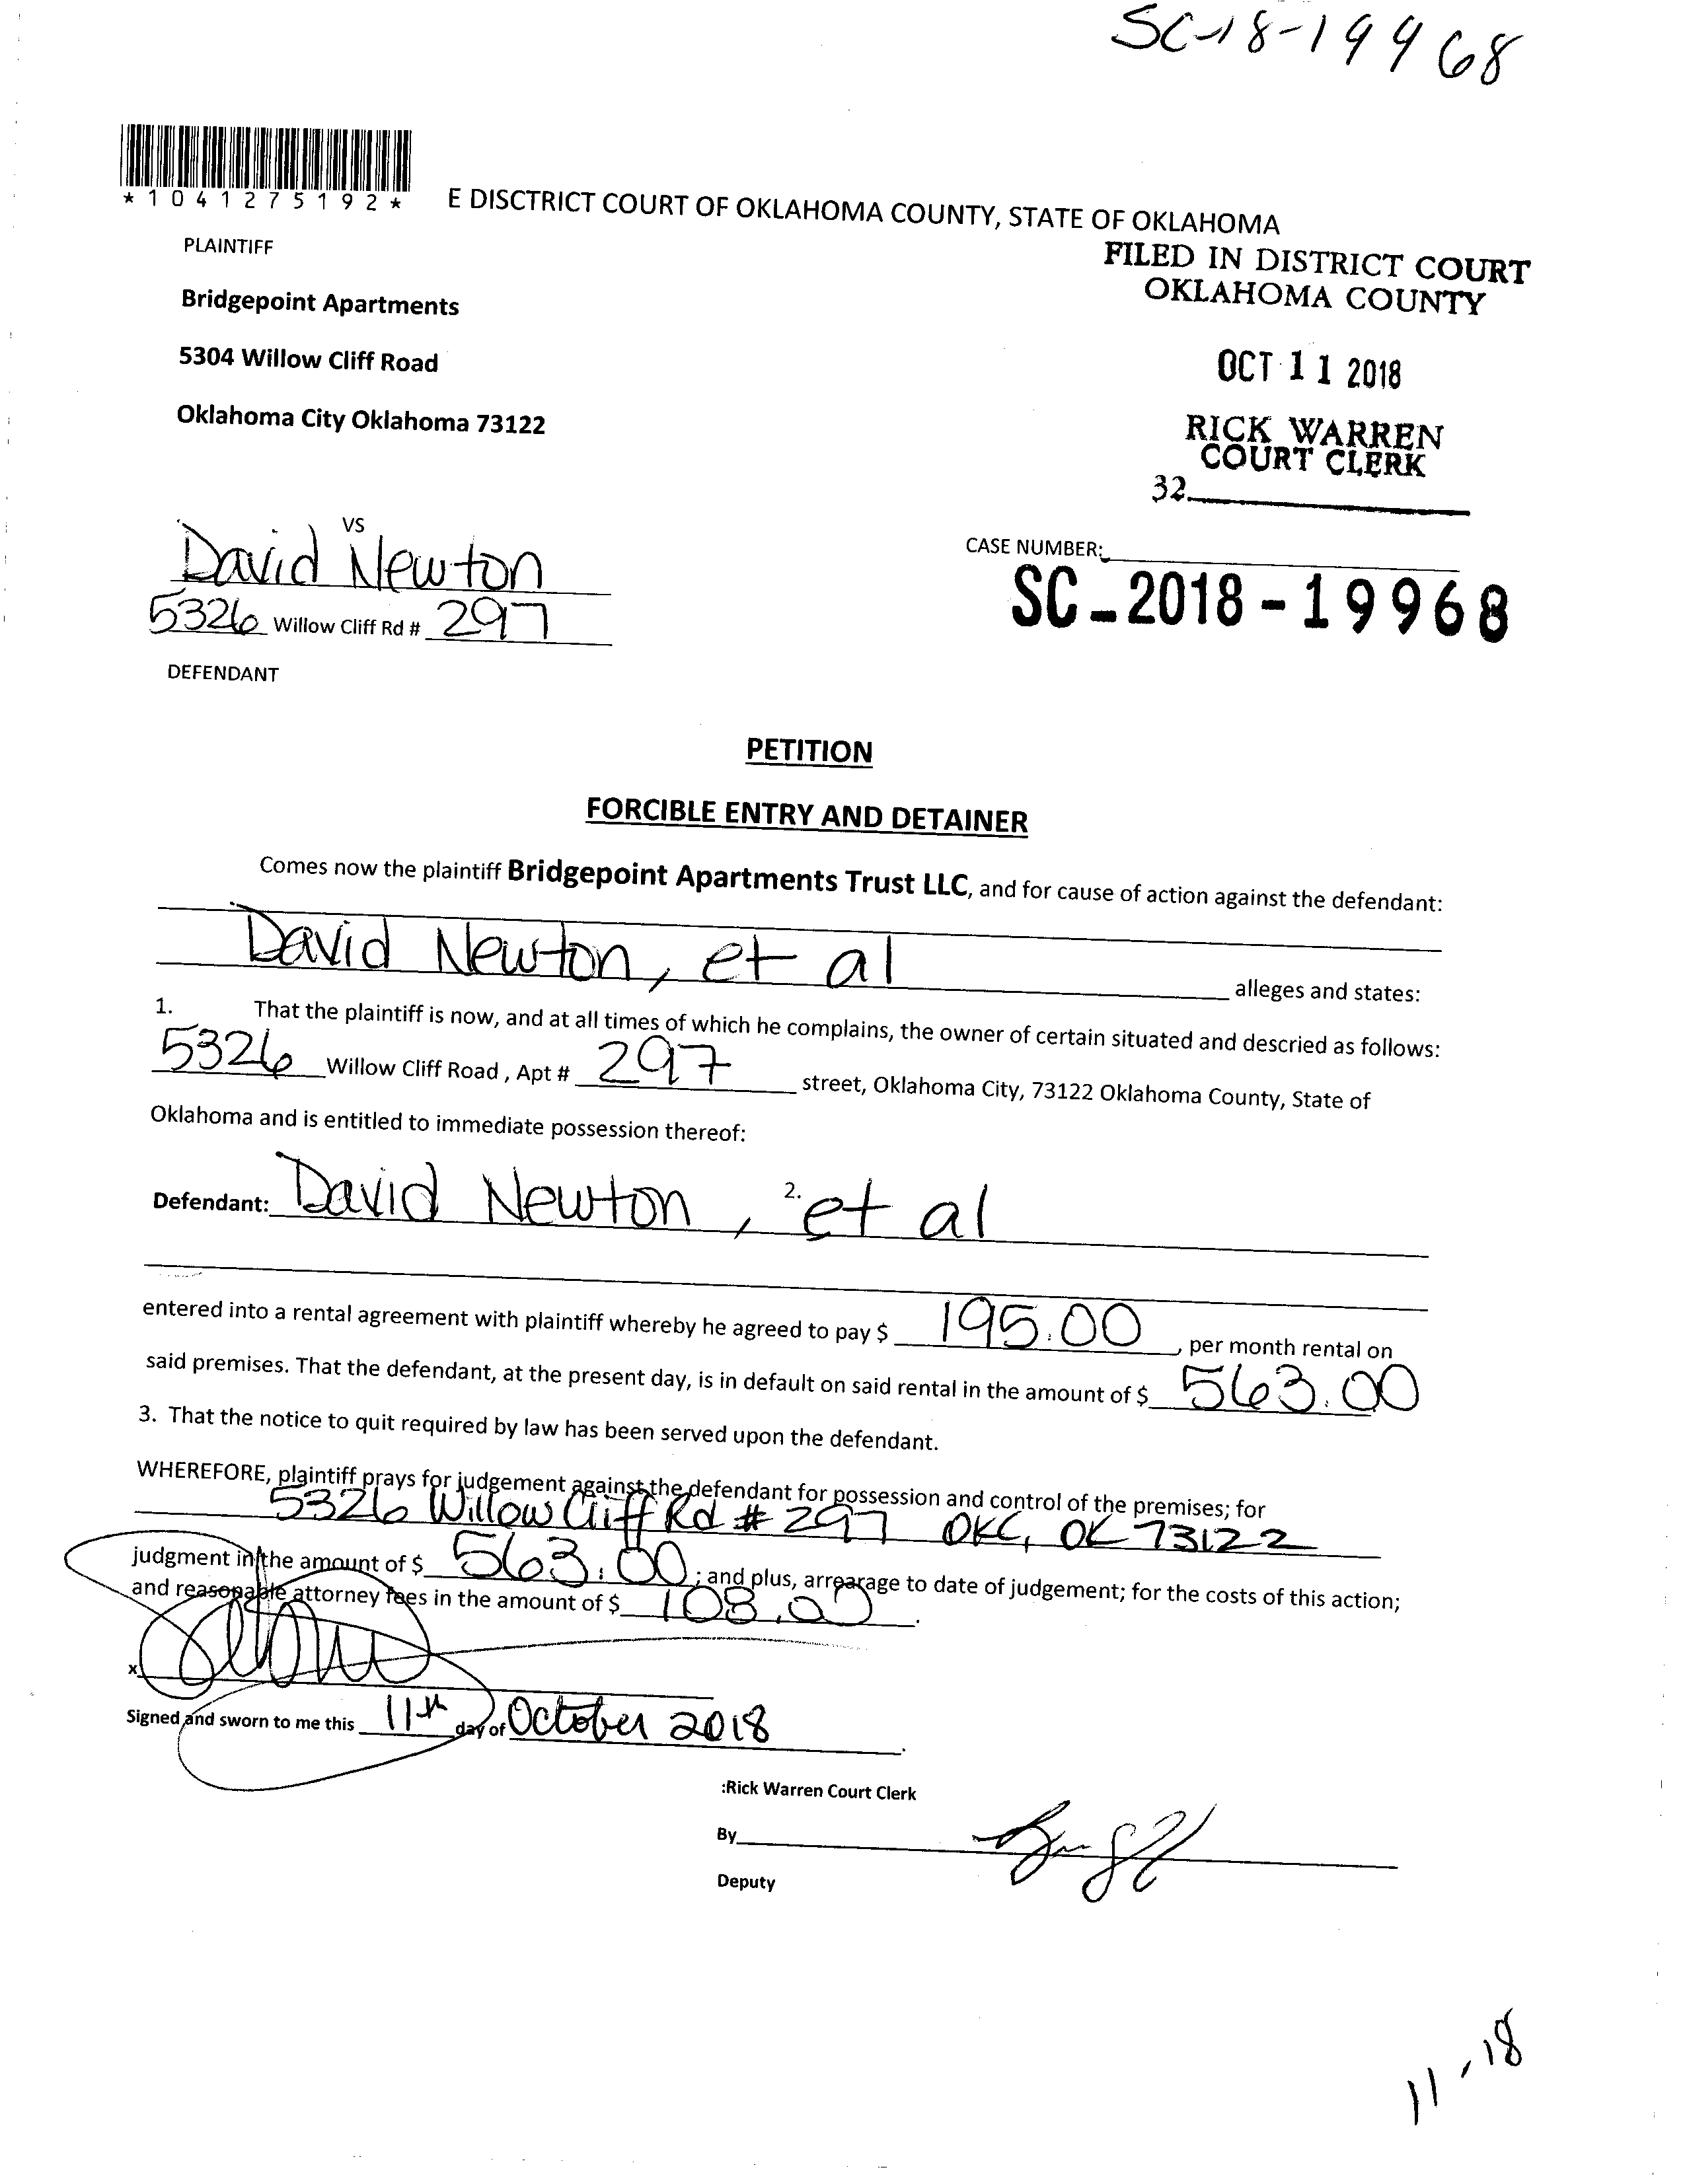 SC-18-19968
*1041275192*
E DISCTRICT COURT OF OKLAHOMA COUNTY, STATE OF OKLAHOMA
PLAINTIFF
FILED IN DISTRICT COURT
OKLAHOMA COUNTY
Bridgepoint Apartments
5304 Willow Cliff Road
OCT 11 2018
Oklahoma City Oklahoma 73122
RICK WARREN
COURT CLERK
32
VS
David Newton
CASE NUMBER:
SC-2018-19968
5326 Willow Cliff Rd # 297
DEFENDANT
PETITION
FORCIBLE ENTRY AND DETAINER
Comes now the plaintiff Bridgepoint Apartments Trust LLC, and for cause of action against the defendant:
David Newton, et al alleges and states:
1. That the plaintiff is now, and at all times of which he complains, the owner of certain situated and descried as follows:
5326 Willow Cliff Road , Apt # 297 street, Oklahoma City, 73122 Oklahoma County, State of
Oklahoma and is entitled to immediate possession thereof:
2.
Defendant: David Newton, et al
entered into a rental agreement with plaintiff whereby he agreed to pay $ 195.00, per month rental on
said premises. That the defendant, at the present day, is in default on said rental in the amount of $ 563.00
3. That the notice to quit required by law has been served upon the defendant.
WHEREFORE, plaintiff prays for judgement against the defendant for possession and control of the premises; for
5326 Willow Cliff Rd # 297 OKC, OK 73122
judgment in the amount of $ 563.00; and plus, arrearage to date of judgement; for the costs of this action;
and reasonable attorney fees in the amount of $ 108.00.
x
Signed and sworn to me this 11th day of October 2018.
:Rick Warren Court Clerk
By
Deputy
11-18